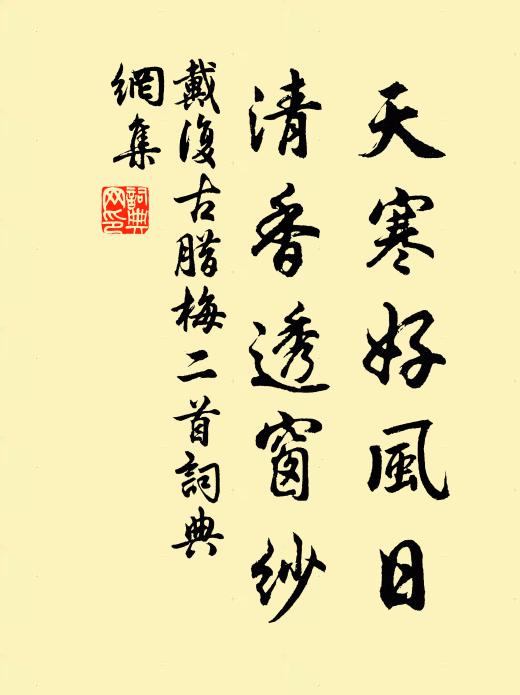 天寒好風日
清香透窗紗
戴復古腊梅二首詞典
網集
詞典網印